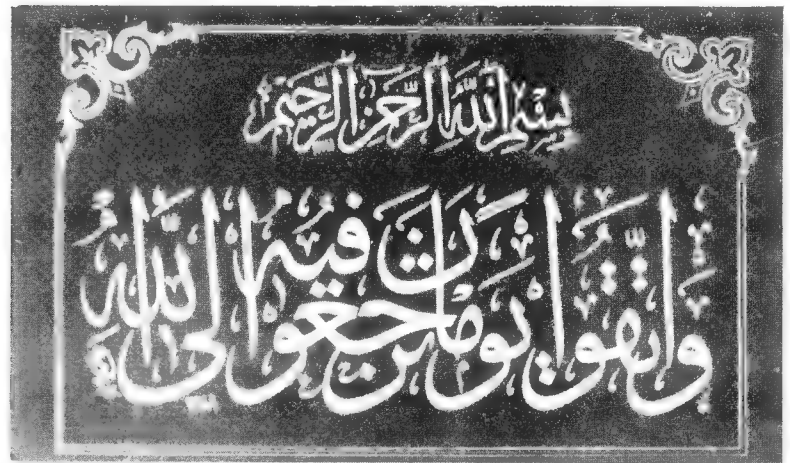 بِسْمِ اللَّهِ الرَّحْمَنِ الرَّحِيمِ
وَاتَّقُوا يَوْمًا تُرْجَعُونَ فِيهِ إِلَى اللَّهِ